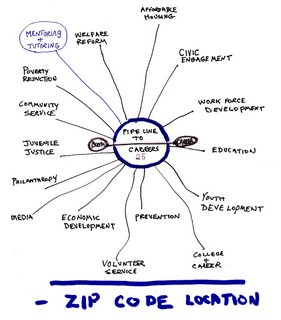 AFFORDABLE
HOUSING
MENTORING
+
TUTORING
WELFARE
REFORM
CIVIC
ENGAGEMENT
POVERTY
REDUCTION
WORK FORCE
DEVELOPMENT
COMMUNITY
SERVICE
PIPE LINE
TO
CAREERS
25
JUVENILE
JUSTICE
EDUCATION
PHILANTHROPY
YOUTH
DEVELOPMENT
MEDIA
ECONOMIC
DEVELOPMENT
PREVENTION
VOLUNTEER
SERVICE
COLLEGE
+
CAREER
- ZIP CODE LOCATION